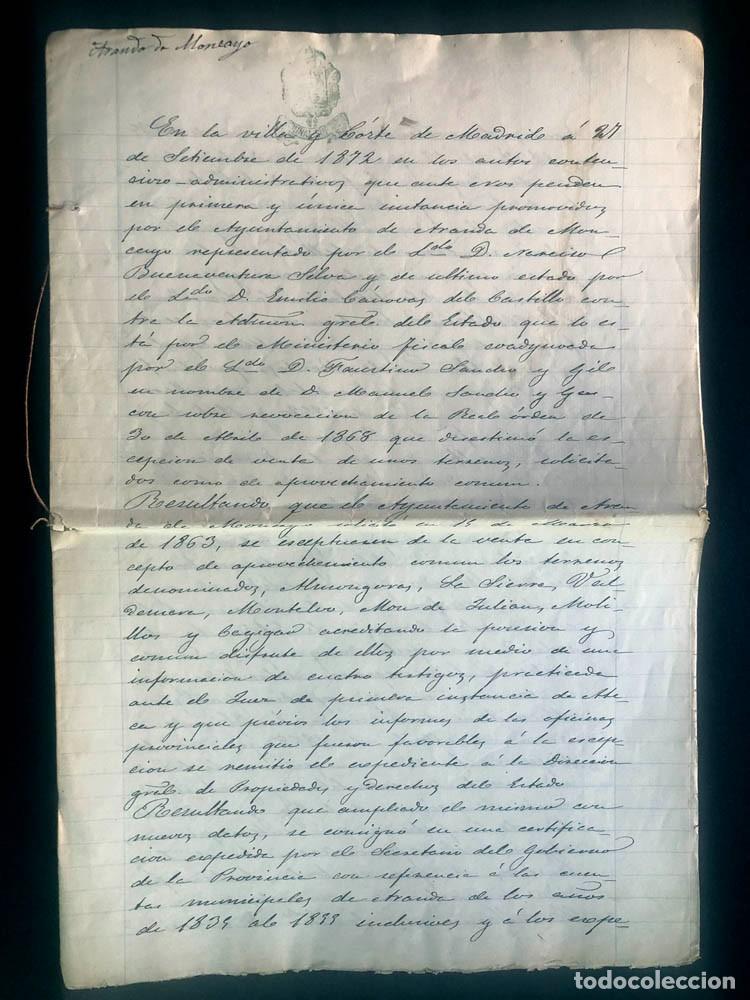 Aranda de Moncayo
En la villa y Córte de Madrid á 27
de Setiembre de 1872 en los autos conten-
cioso-administrativos que ante nos penden
en primera y única instancia promovidos
por el Ayuntamiento de Aranda de Mon-
cayo representado por el Ldo D. Narciso
Buenaventura Selva y de ultimo estado por
el Ldo D. Emilio Cánovas del Castillo con-
tra la Admon gral. del Estado que lo es-
tá por el Ministerio fiscal coadyuvada
por el Ldo D. Faustino Sancho y Gil
en nombre de D. Manuel Sancho y Gas-
con sobre revocacion de la Real órden de
30 de Abril de 1868 que desestimó la es-
cepcion de venta de unos terrenos, solicita-
dos como de aprovechamiento comun.
Resultando que el Ayuntamiento de Aran-
da de Moncayo solicitó en 15 de Marzo
de 1863, se esceptuasen de la venta en con-
cepto de aprovechamiento comun los terrenos
denominados, La Sierra, Val-
demera, Montalvo, de Julian, Moli-
llos y acreditando la posesion y
comun disfrute de ellos por medio de una
informacion de cuatro testigos, practicada
ante el Juez de primera instancia de Ate-
ca y que prévios los informes de las oficinas
provinciales que fueron favorables á la escep-
cion se remitió el espediente á la Direccion
gral. de Propiedades y derechos del Estado
Resultando que ampliado el mismo con
nuevos datos, se consignó en una certifica-
cion expedida por el Secretario del Gobierno
de la Provincia con referencia á las cuen-
tas municipales de Aranda de los años
de 1835 al inclusives y á los espe-
todocoleccion